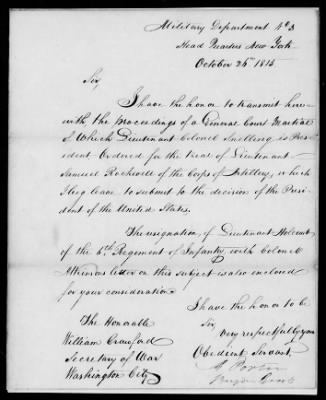 Military Department No 3
Head Quarters New York
October 26th 1815
Sir,
I have the honor to transmit here-
with the proceedings of a General Court Martial
of Which Lieutenant Colonel Snelling is Pres-
ident Ordered for the trial of Lieutenant
Samuel Rockwell of the Corps of Artillery, which
I beg leave to submit to the decision of the Presi-
dent of the United States.
The resignation, of Lieutenant
of the 6th Regiment of Infantry, with Colonel
letter on this subject is also enclosed
for your consideration
I have the honor to be
Sir,
Very respectfully your
Obedient Servant,
The Honorable
William Crawford
Secretary of War
Washington City